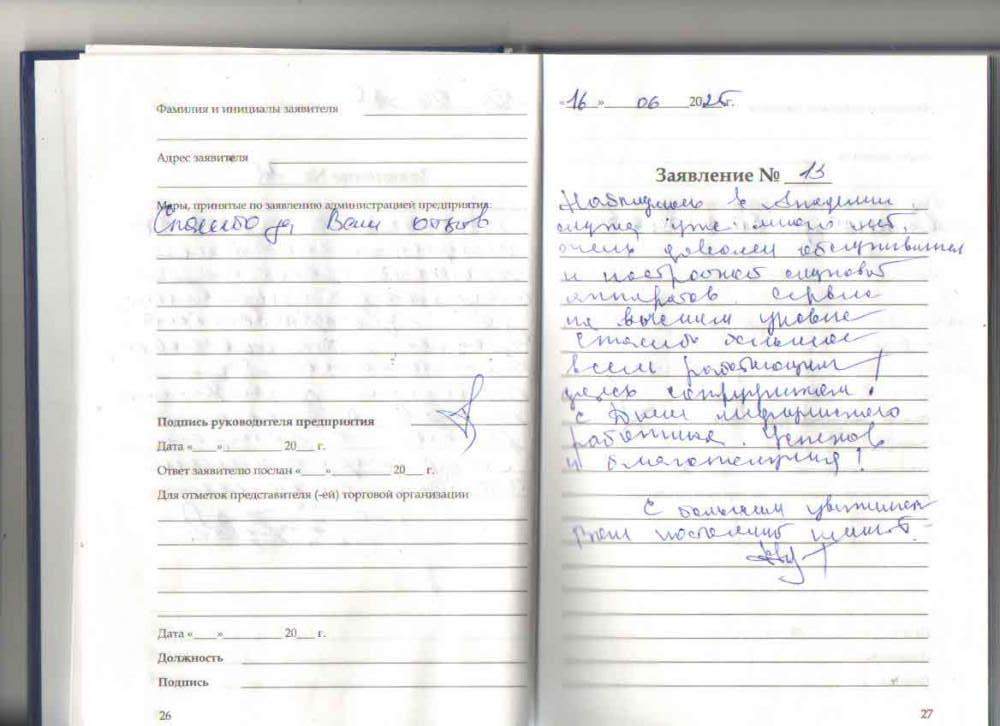 Фамилия и инициалы заявителя
Адрес заявителя
Меры, принятые по заявлению администрацией предприятия:
Спасибо за Ваш отзыв
Подпись руководителя предприятия
Дата «____»__________ 20___ г.
Ответ заявителю послан «____»__________ 20___ г.
Для отметок представителя (-ей) торговой организации
Дата «____»__________ 20___ г.
Должность
Подпись
26
«16 » 06 2025г.
Заявление № 13
Наблюдаюсь в Академии
слуха уже много лет,
очень доволен обслуживанием
и настройкой слуховых
аппаратов. Сервис
на высшем уровне
Спасибо большое
всем работающим
здесь сотрудникам!
С Днём медицинского
работника. Успехов
и благополучия!
С большим уважением
Ваш постоянный клиент.
27